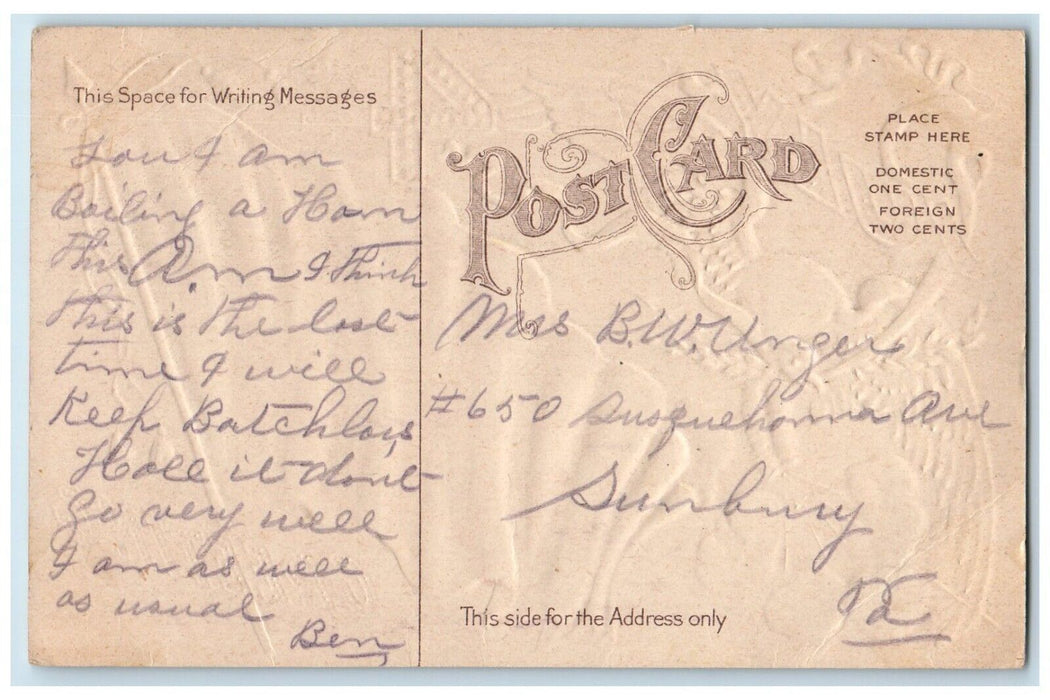 This Space for Writing Messages
Lou I am
Boiling a Ham
this A.m I think
this is the last
time I will
Keep Batchlors
Hall it dont
go very well
I am as well
as usual
Ben
POST CARD
PLACE
STAMP HERE
DOMESTIC
ONE CENT
FOREIGN
TWO CENTS
Mrs B.W. Unger
#650 Susquehanna Ave
Sunbury
Pa
This side for the Address only